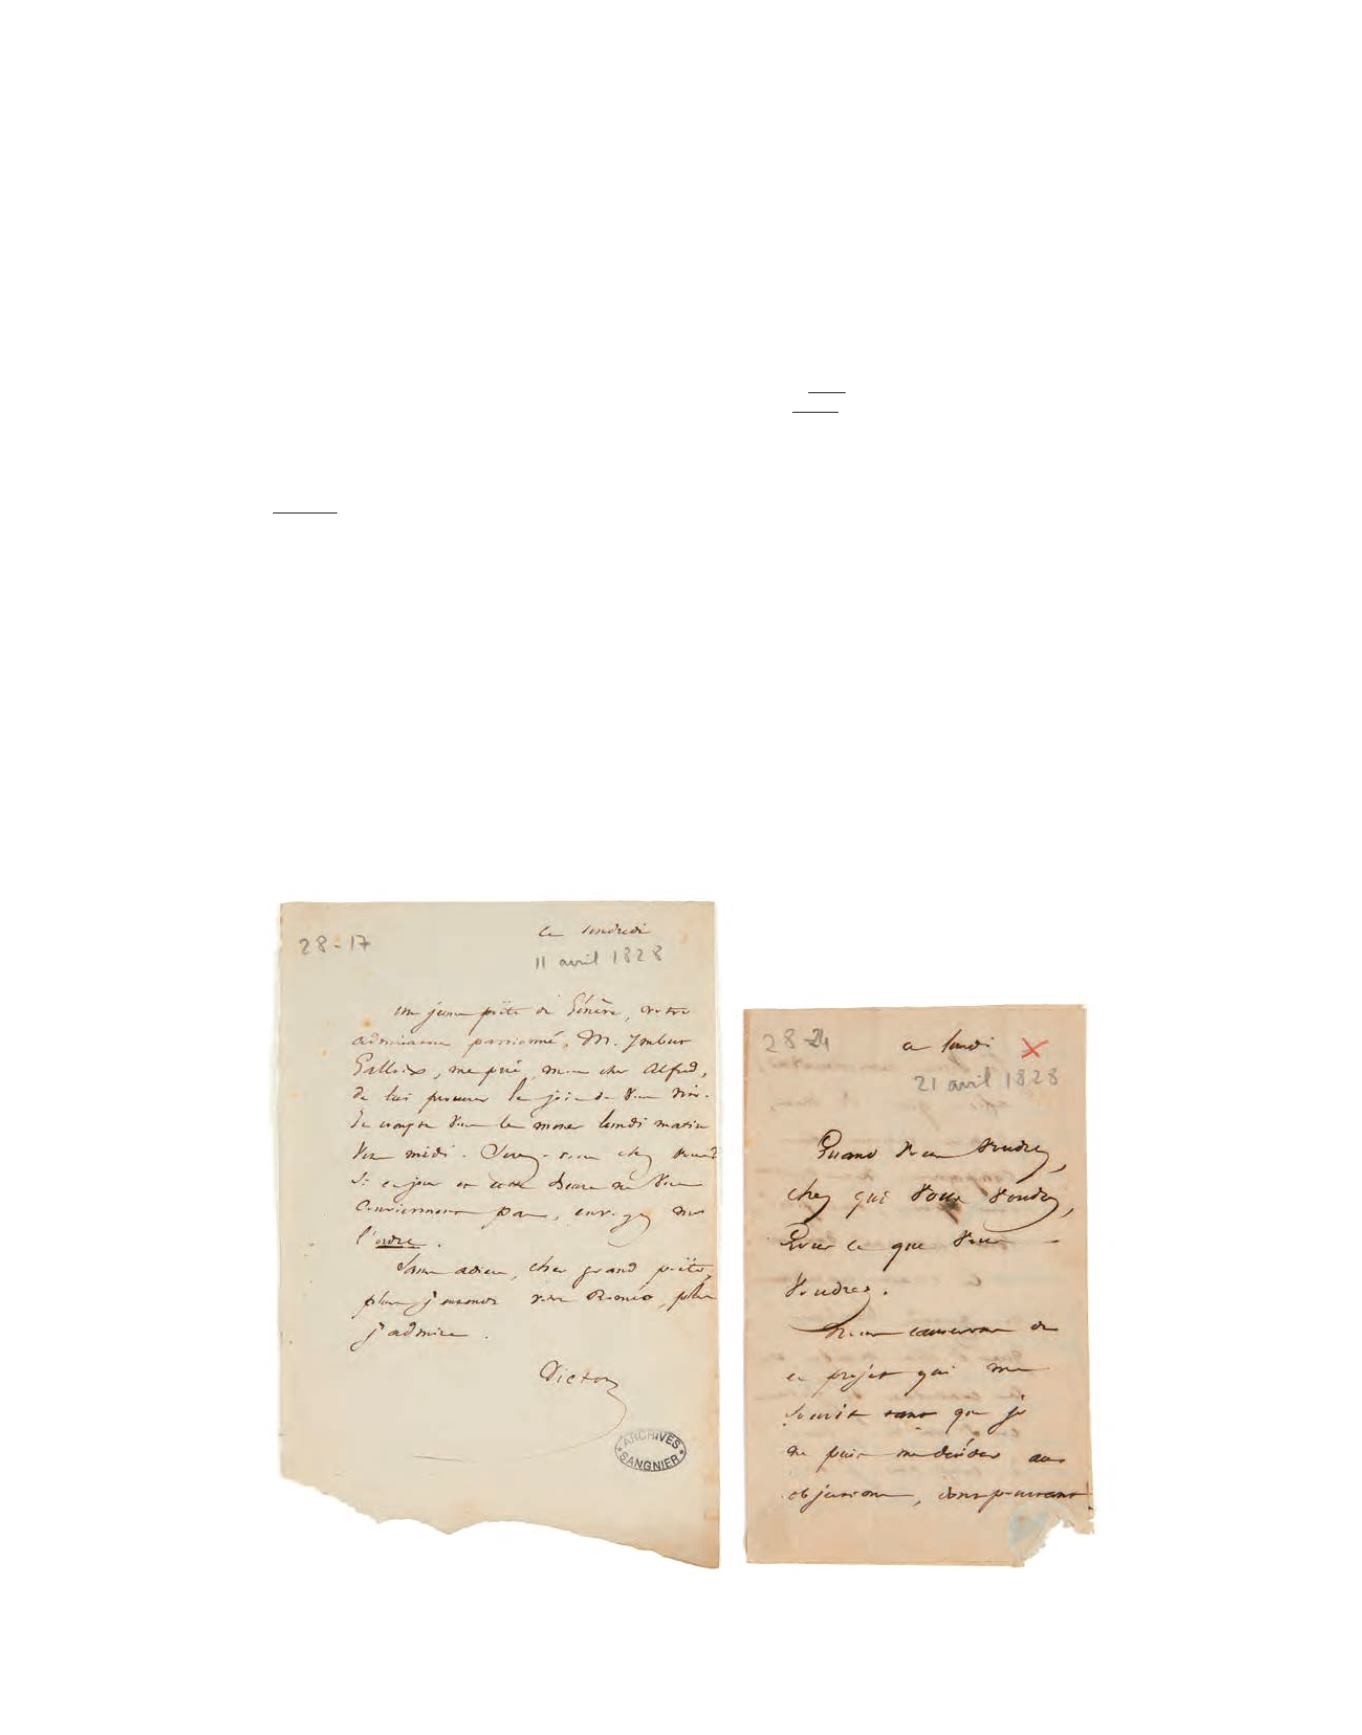 28-17
ce vendredi
11 avril 1828
un jeune poëte de Génève, votre
admirateur passionné, M. Ymbert
Galloix, me prie, mon cher Alfred,
de lui procurer la joie de vous voir.
Je compte vous le mener lundi matin
vers midi. Serez-vous chez vous?
Si ce jour et cette heure ne vous
conviennent pas, envoyez moi
l'ordre.
Sans adieu, cher grand poëte,
plus j'entends votre Roméo, plus
j'admire.
Victor
ARCHIVES
SANGNIER
28-24
ce lundi
21 avril 1828
Quand vous voudrez,
chez qui vous voudrez,
Pour ce que vous
voudrez.
Nous causerons de
ce projet qui me
sourit tant que je
ne puis me décider aux
objections, dont pourtant